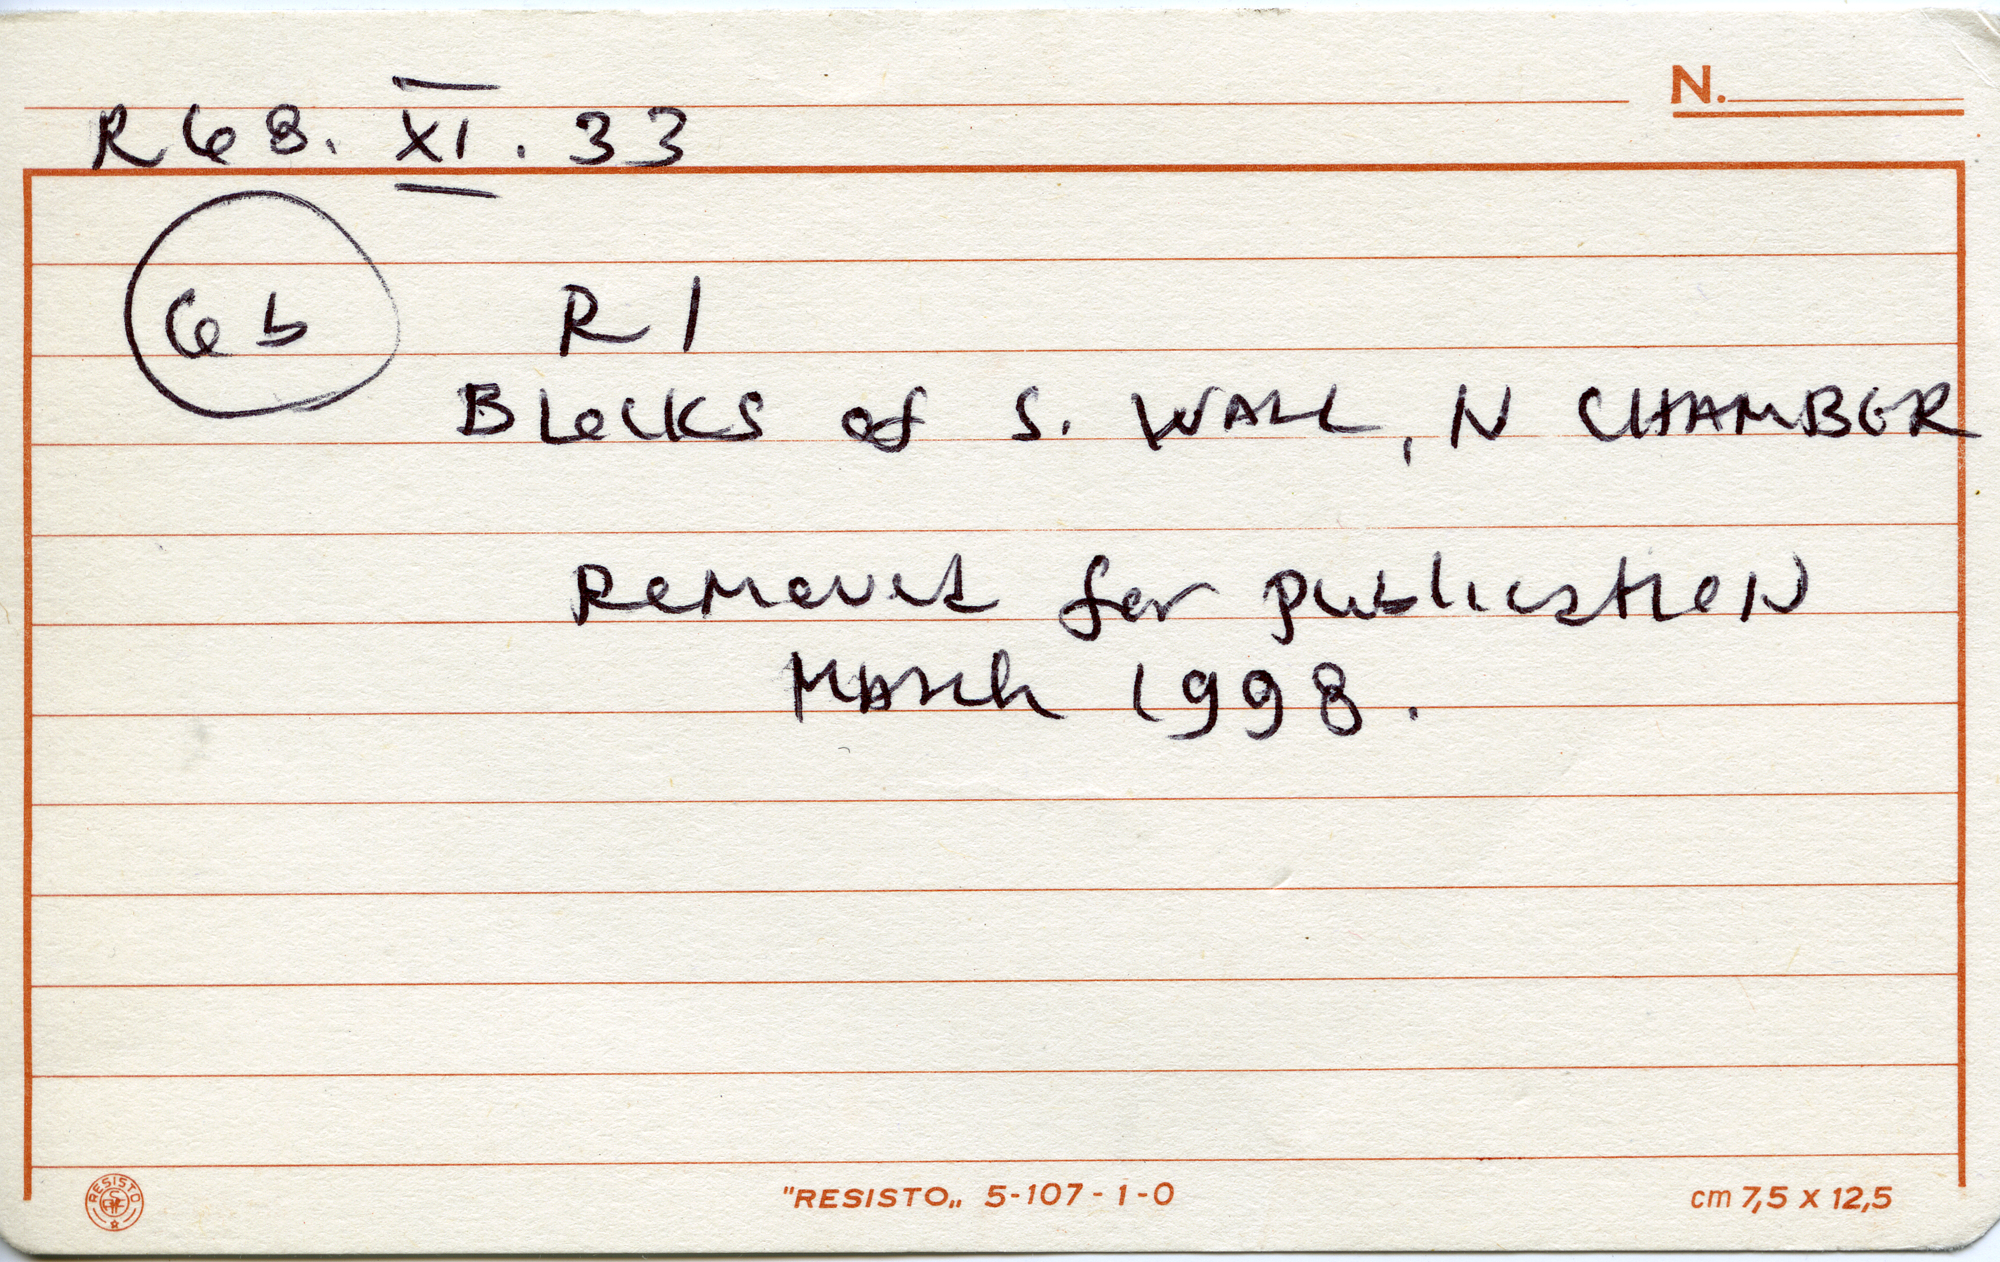 N.
R68. XI. 33
6b R1
Blocks of S. WALL, N CHAMBER
Removed for publication
March 1998.
RESISTO
"RESISTO„ 5-107-1-0
cm 7,5 x 12,5